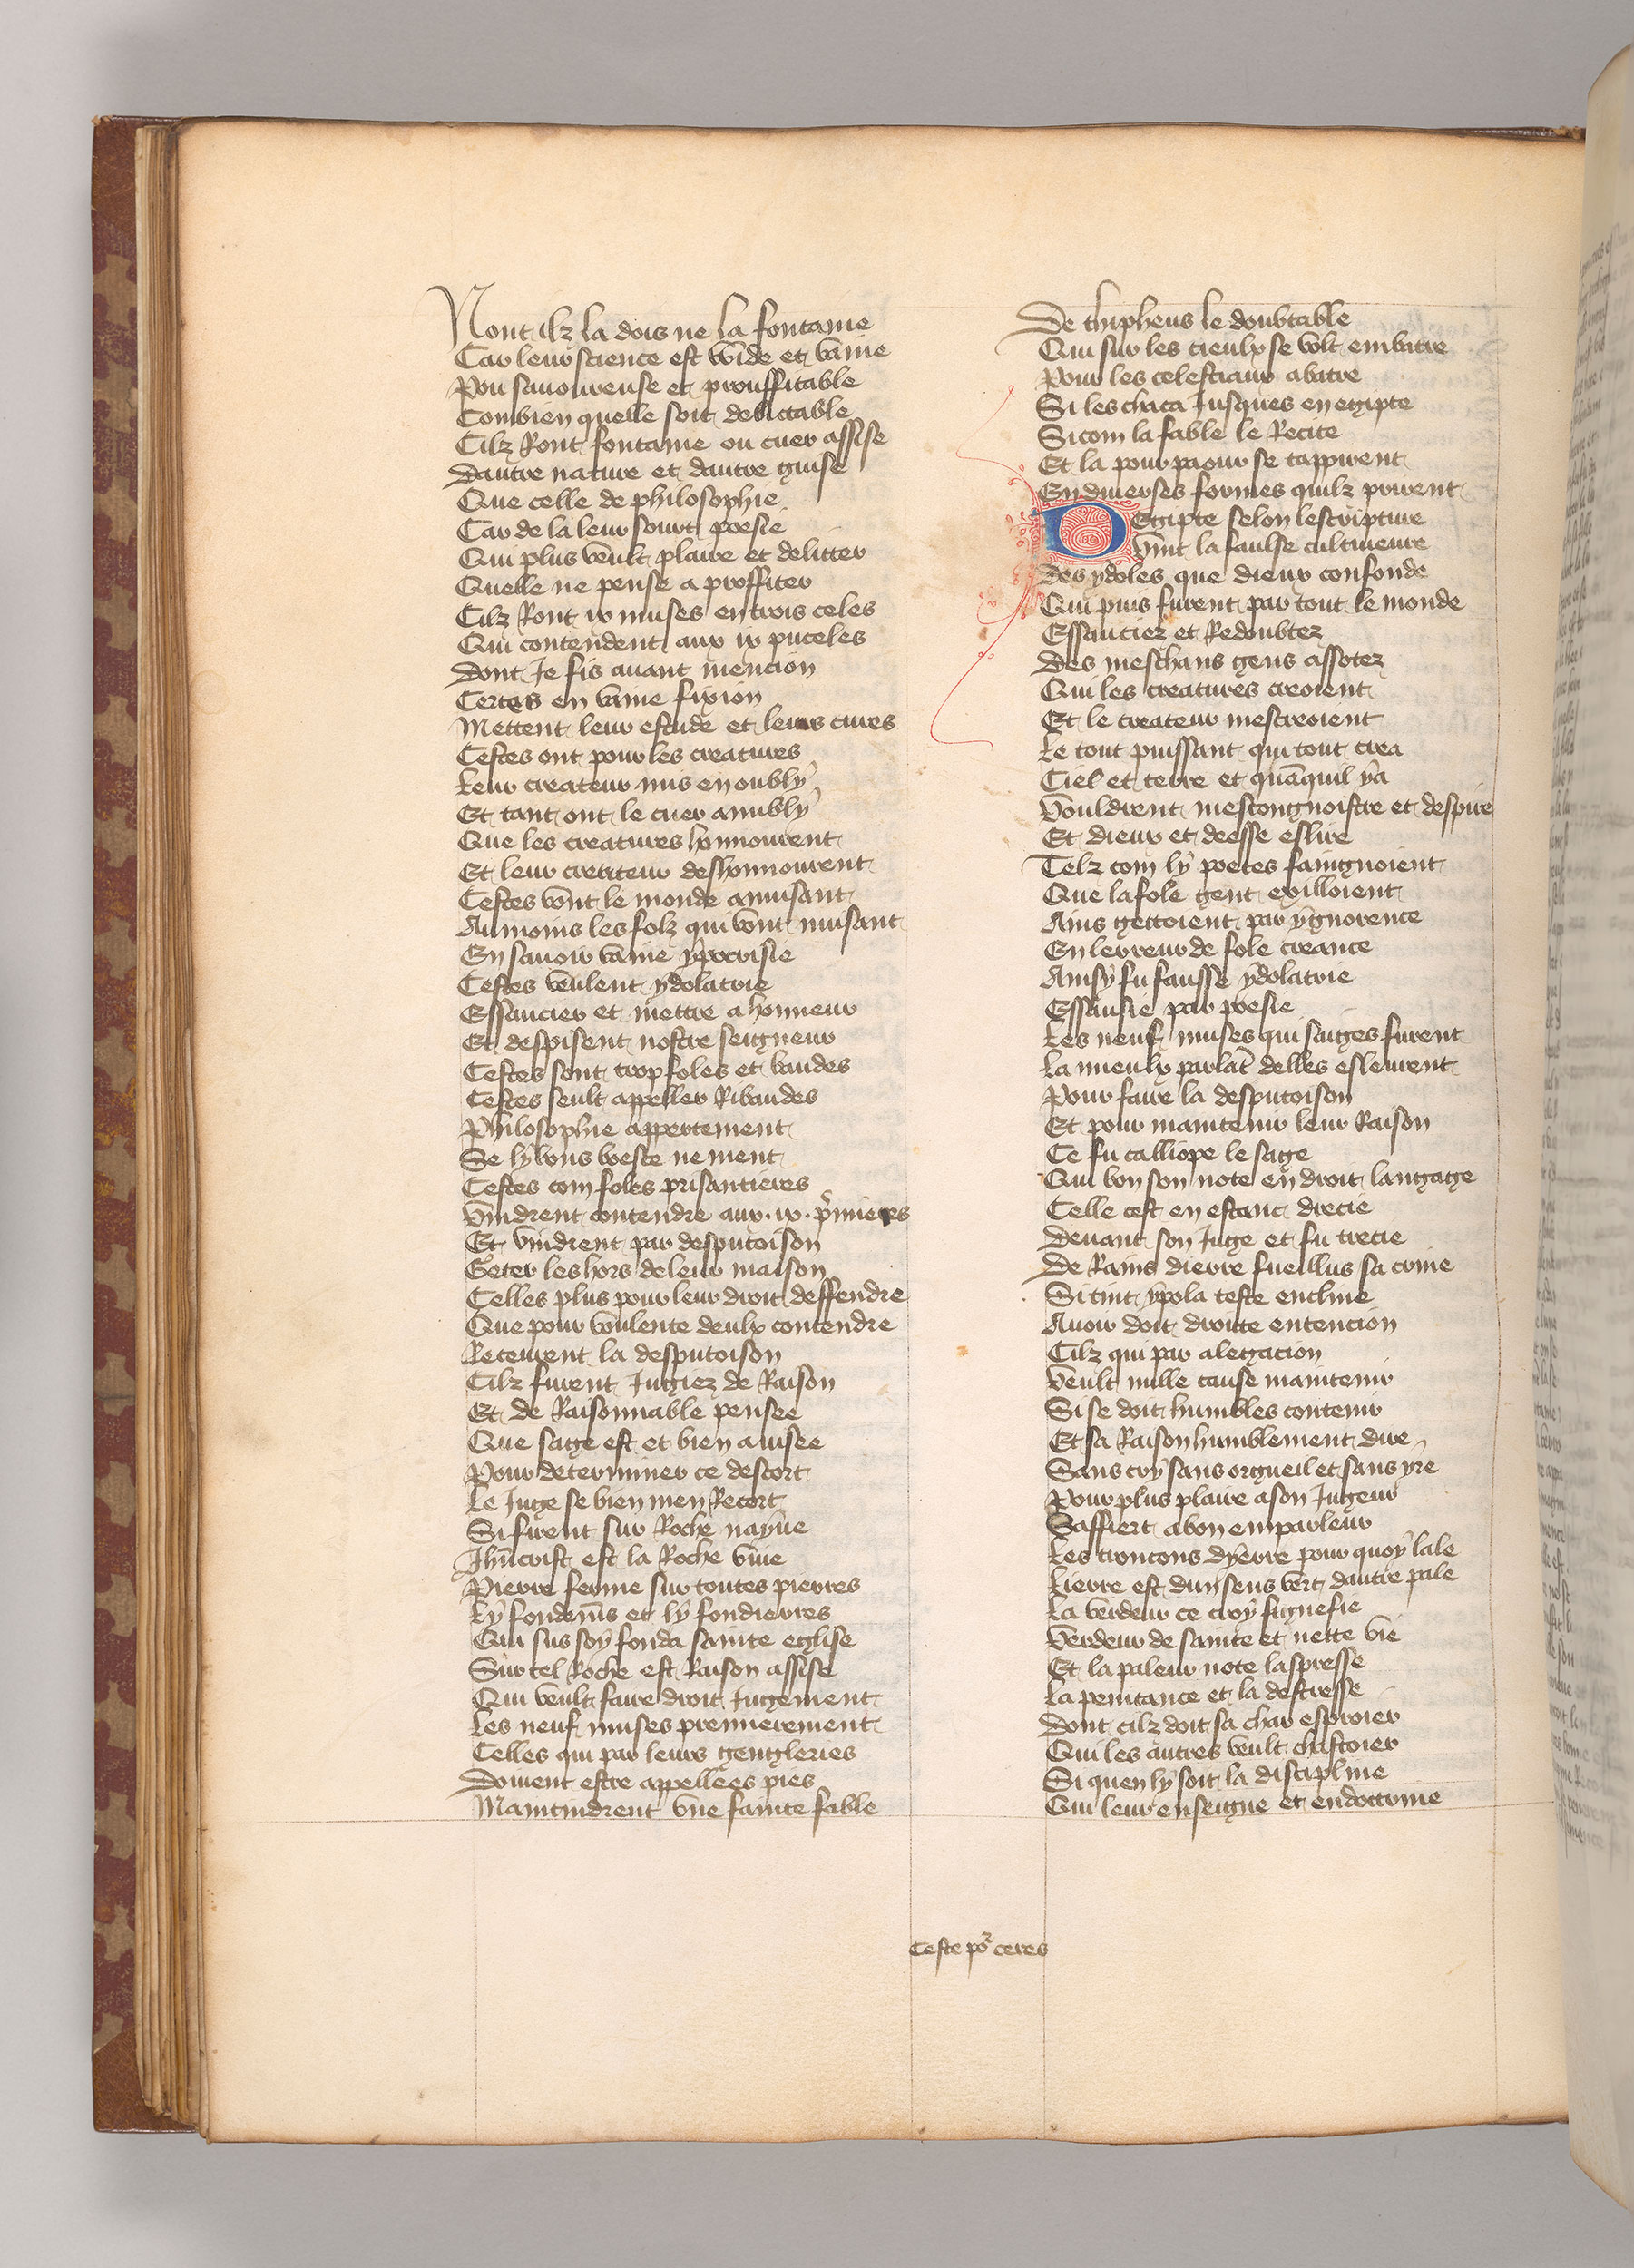 Nont ilz la dois ne la fontaine
Car leur science est voide et vaine
Pou savoureuse et prouffitable
Combien quelle soit delictable
Cilz Ront fontaine ou cuer assise
Dautre nature et dautre guise
Que celle de philosophie
Car de la leur sourt poesie
Qui plus veult plaire et deliter
Quelle ne pense a proffiter
Cilz Ront ix muses en trois celes
Qui contendent aux ix puceles
Dont Je fis avant mencion
Certes en vaine fixion
Mettent leur estude et leurs cures
Cestes ont pour les creatures
Leur createur mis en oubly
Et tant ont le cuer anubly
Que les creatures honnourent
Et leur createur deshonnourent
Cestes vont le monde amusant
Au moins les folz qui vont musant
En savoir vaine ypocrisie
Cestes veulent ydolatrie
Essaucier et mettre a honneur
Et despisent nostre seigneur
Cestes sont trop foles et baudes
Cestes seult appeller Ribaudes
Philosophie appertement
Se ly bons boesce ne ment
Cestes com foles prisantieres
Vindrent contendre aux .ix. p̃mieres
Et vindrent par desputoison
Geter les hors de leur maison
Celles plus pour leur droit deffendre
Que pour voulente deulx contendre
Recewrent la desputoison
Cilz furent Jugiez de Raison
Et de Raisonnable pensee
Que sage est et bien avisee
Pour determiner ce descort
Le Juge se bien men Recort
Si furent sur Roche nayve
Jhũcrist est la Roche vive
Pierre ferme sur toutes pierres
Ly fondem̃s et ly fondierres
Qui sus soy fonda sainte eglise
Sur tel Roche est Raison assise
Qui veult faire droit Jugement
Les neuf muses premierement
Celles qui par leurs gengleries
Doivent estre appellees pies
Maintindrent vne fainte fable
De thipheus le doubtable
Qui sur les cieulx se volt embatre
Pour les celestiaux abatre
Si les chaca Jusques en egipte
Si com la fable le Recite
Et la pour paour se tappirent
En diverses formes quilz prirent
Degipte selon lescripture
Vint la faulse cultiveure
Des ydoles que dieux confonde
Qui puis furent par tout le monde
Essauciez et Redoubtez
Des meschans gens assotez
Qui les creatures creoient
Et le createur mescreoient
Le tout puissant qui tout crea
Ciel et terre et quãquil y a
Vouldrent mescongnoistre et despire
Et dieux et deesse eslire
Telz com ly poetes faingnoient
Que la fole gent exilloient
Ains gettoient par ygnorence
En lerreur de fole creance
Ainsy fu fausse ydolatrie
Essausie par poesie
Les neuf muses qui saiges furent
La mieulx parlãt delles eslewrent
Pour faire la desputoison
Et pour maintenir leur Raison
Ce fu calliope le sage
Qui bon son note en droit langage
Celle cest en estant drecie
Devant son Juge et fu trecie
De Rains dierre fueillus sa crine
Si tint ypo la teste encline
Avoir doit droite entencion
Cilz qui par alegacion
Veult nulle cause maintenir
Si se doit humbles contenir
Et sa Raison humblement dire
Sans cry sans orgueil et sans yre
Pour plus plaire a son Jugeur
Saffiert a bon emparleur
Les troncons dyerre pour quoy lale
Lierre est dun sens vert dautre pale
La verdeur ce croy signefie
Verdeur de sainte et nette vie
Et la paleur note laspresse
La penitance et la destresse
Dont cilz doit sa char esproier
Qui les autres veult chastoier
Si quen ly soit la discipline
Qui leur enseigne et endoctrine
Ceste por ceres